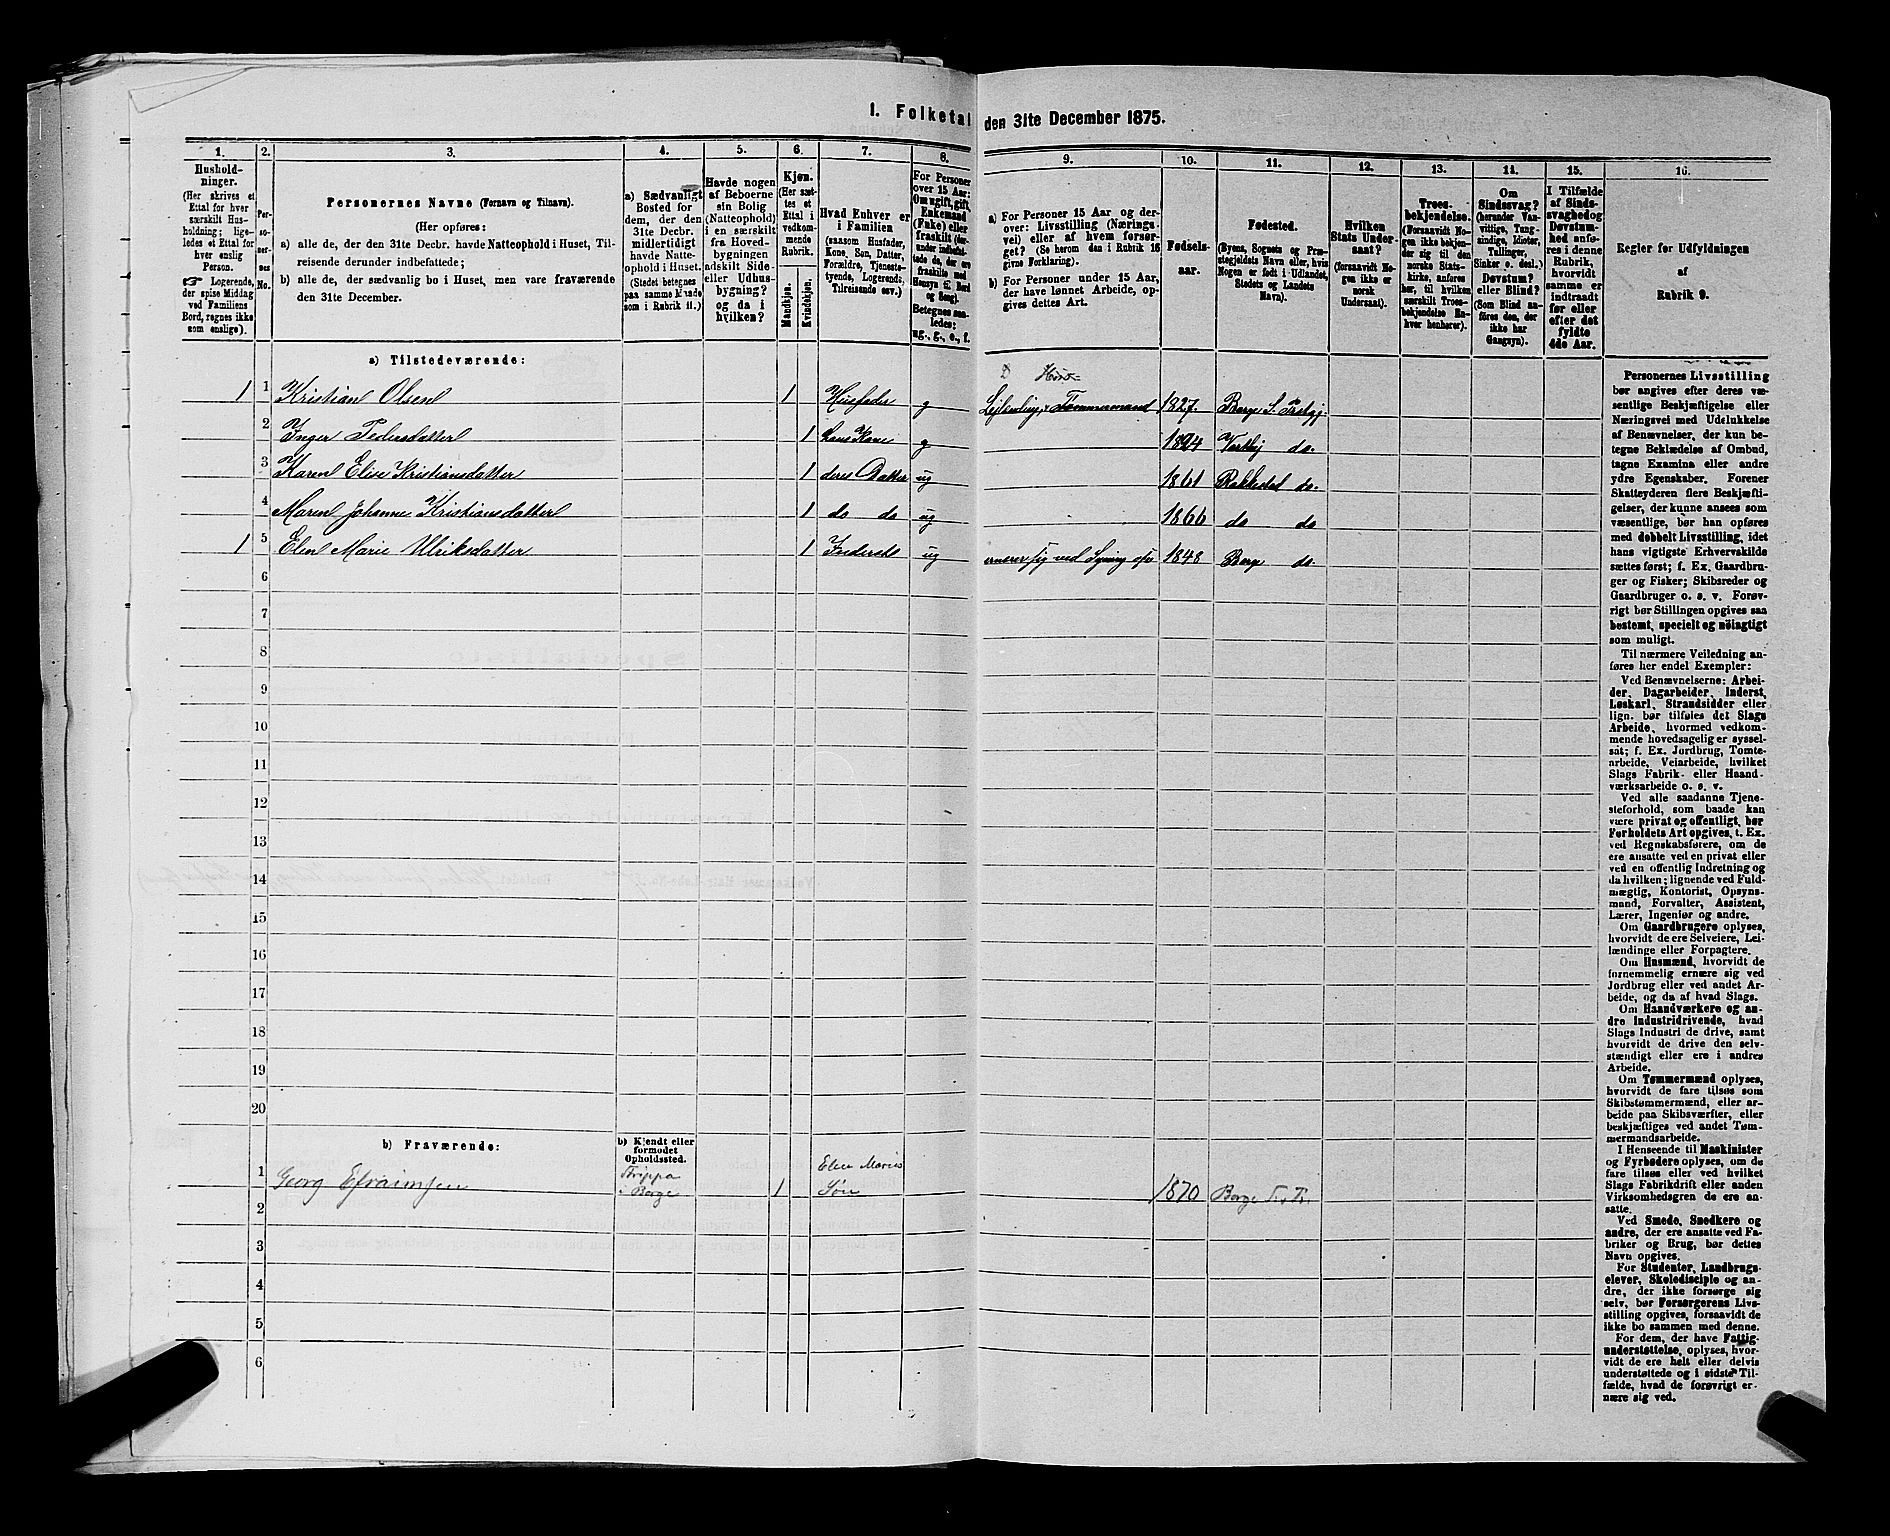 1. Folketal den 31te December 1875.
1.
Hushold-
ninger.
(Her skrives et
Ettal for hver
særskilt Hus-
holdning; lige-
ledes et Ettal for
hver enslig
Person.
☞ Logerende,
der spise Middag
ved Familiens
Bord, regnes ikke
som enslige).
2.
Per-
so-
ner-
nes
No.
3.
Personernes Navne (Fornavn og Tilnavn).
(Her opføres:
a) alle de, der den 31te Decbr. havde Natteophold i Huset, Til-
reisende derunder indbefattede;
b) alle de, der sædvanlig bo i Huset, men vare fraværende
den 31te December.
4.
a) Sædvanligt
Bosted for
dem, der den
31te Decbr.
midlertidigt
havde Natte-
ophold i Huset.
(Stedet betegnes
paa samme Maade
som i Rubrik 11.)
5.
Havde nogen
af Beboerne
sin Bolig
(Natteophold)
i en særskilt
fra Hoved-
bygningen
adskilt Side-
eller Udhus-
bygning?
og da i
hvilken?
6.
Kjøn.
(Her sæt-
tes et
Ettal i
vedkom-
mende
Rubrik.
Mandkjøn.
Kvindekjøn.
7.
Hvad Enhver er
i Familien
(saasom Husfader,
Kone, Søn, Datter,
Forældre, Tjeneste-
tyende, Logerende,
Tilreisende osv.)
8.
For Personer
over 15 Aar:
Om ugift, gift,
Enkemand
(Enke) eller
fraskilt (her-
under indbefat-
tede de, der ere
fraskilte med
Hensyn til Bord
og Seng).
Betegnes saa-
ledes:
ug., g., e., f.
9.
a) For Personer 15 Aar og der-
over: Livsstilling (Nærings-
vei) eller af hvem forsør-
get? (Se herom den i Rubrik 16
givne Forklaring).
b) For Personer under 15 Aar,
der have lønnet Arbeide, op-
gives dettes Art.
10.
Fødsels-
aar.
11.
Fødested.
(Byens, Sognets og Præ-
stegjeldets Navn eller, hvis
Nogen er født i Udlandet,
Stedets og Landets
Navn).
12.
Hvilken
Stats Under-
saat?
(forsaavidt No-
gen ikke er
norsk
Undersaat).
13.
Troes-
bekjendelse.
(Forsaavidt No-
gen ikke bekjen-
der sig til den
norske Stats-
kirke, anføres
her, til hvilken
særskilt Troes-
bekjendelse En-
hver henhører).
14.
Om
Sindssvag?
(herunder Van-
vittige, Tung-
sindige, Idioter,
Tullinger,
Sinker o. desl.)
Døvstum?
eller Blind?
(Som Blind an-
føres den, der
ikke har
Gangsyn).
15.
I Tilfælde
af Sinds-
svaghed og
Døvstum-
hed anfø-
res i denne
Rubrik,
hvorvidt
samme er
indtraadt
før eller
efter det
fyldte
4de Aar.
16.
Regler for Udfyldningen
af
Rubrik 9.
a) Tilstedeværende:
1 1 Kristian Olsen 1 Husfader g Leilending & Tømmermand 1827. Borge S. Prstgj
2 Inger Pedersdatter 1 hans Kone g 1824 do.
3 Karen Elise Kristiansdatter 1 deres Datter ug 1861 Rakkestad do.
4 Maren Johanne Kristiansdatter 1 do do ug 1866 do do
1 5 Elen Marie Ulriksdatter 1 Inderste ug ernærer sig ved Syning 1848 Borge do.
6
7
8
9
10
11
12
13
14
15
16
17
18
19
20
b) Fraværende:
b) Kjendt eller
formodet
Opholdssted.
1 Georg Efraimsen Trippa i Borge 1 Elen Maries Søn 1870 Borge
2
3
4
5
6
Personernes Livsstilling
bør angives efter deres væ-
sentlige Beskjæftigelse eller
Næringsvei med Udelukkelse
af Benævnelser, der kun be-
tegne Beklædelse af Ombud,
tagne Examina eller andre
ydre Egenskaber. Forener
Skatteyderen flere Beskjæfti-
gelser, der kunne ansees som
væsentlige, bør han opføres
med dobbelt Livsstilling, idet
hans vigtigste Erhvervskilde
sættes først; f. Ex. Gaardbru-
ger og Fisker; Skibsreder og
Gaardbruger o. s. v. Forøv-
rigt bør Stillingen opgives saa
bestemt, specielt og nøiagtigt
som muligt.
Til nærmere Veiledning an-
føres her endel Exempler:
Ved Benævnelserne: Arbei-
der, Dagarbeider, Inderst,
Løskarl, Strandsidder eller
lign. bør tilføies det Slags
Arbeide, hvormed vedkom-
mende hovedsagelig er syssel-
sat; f. Ex. Jordbrug, Tomte-
arbeide, Veiarbeide, hvilket
Slags Fabrik- eller Haand-
værksarbeide o. s. v.
Ved alle saadanne Tjene-
steforhold, som baade kan
være privat og offentligt, bør
Forholdets Art opgives, t. Ex.
ved Regnskabsførere, om de
ere ansatte ved en privat eller
ved en offentlig Indretning og
da hvilken; lignende ved Fuld-
mægtig, Kontorist, Opsyns-
mand, Forvalter, Assistent,
Lærer, Ingeniør og andre.
Om Gaardbrugere oplyses,
hvorvidt de ere Selveiere, Lei-
lændinge eller Forpagtere.
Om Husmænd, hvorvidt de
fornemmelig ernære sig ved
Jordbrug eller ved andet Ar-
beide, og da af hvad Slags.
Om Haandværkere og an-
dre Industridrivende, hvad
Slags Industri de drive, samt
hvorvidt de drive den selv-
stændigt eller ere i andres
Arbeide.
Om Tømmermænd oplyses,
hvorvidt de fare tilsøs som
Skibstømmermænd, eller ar-
beide paa Skibsværfter, eller
beskjæftiges ved andet Tøm-
mermandsarbeide.
I Henseende til Maskinister
og Fyrbødere oplyses, om de
fare tilsøs eller ved hvilket
Slags Fabrikdrift eller anden
Virksomhedsgren de ere an-
satte.
Ved Smede, Snedkere og
andre, der ere ansatte ved Fa-
briker og Brug, bør dettes
Navn opgives.
For Studenter, Landbrugs-
elever, Skoledisciple og an-
dre, der ikke forsørge sig
selv, bør Forsørgerens Livs-
stilling opgives, forsaavidt de
ikke bo sammen med denne.
For dem, der have Fattig-
understøttelse, oplyses, hvor-
vidt de ere helt eller delvis
understøttede og i sidste Til-
fælde, hvad de forøvrigt er-
nære sig ved.